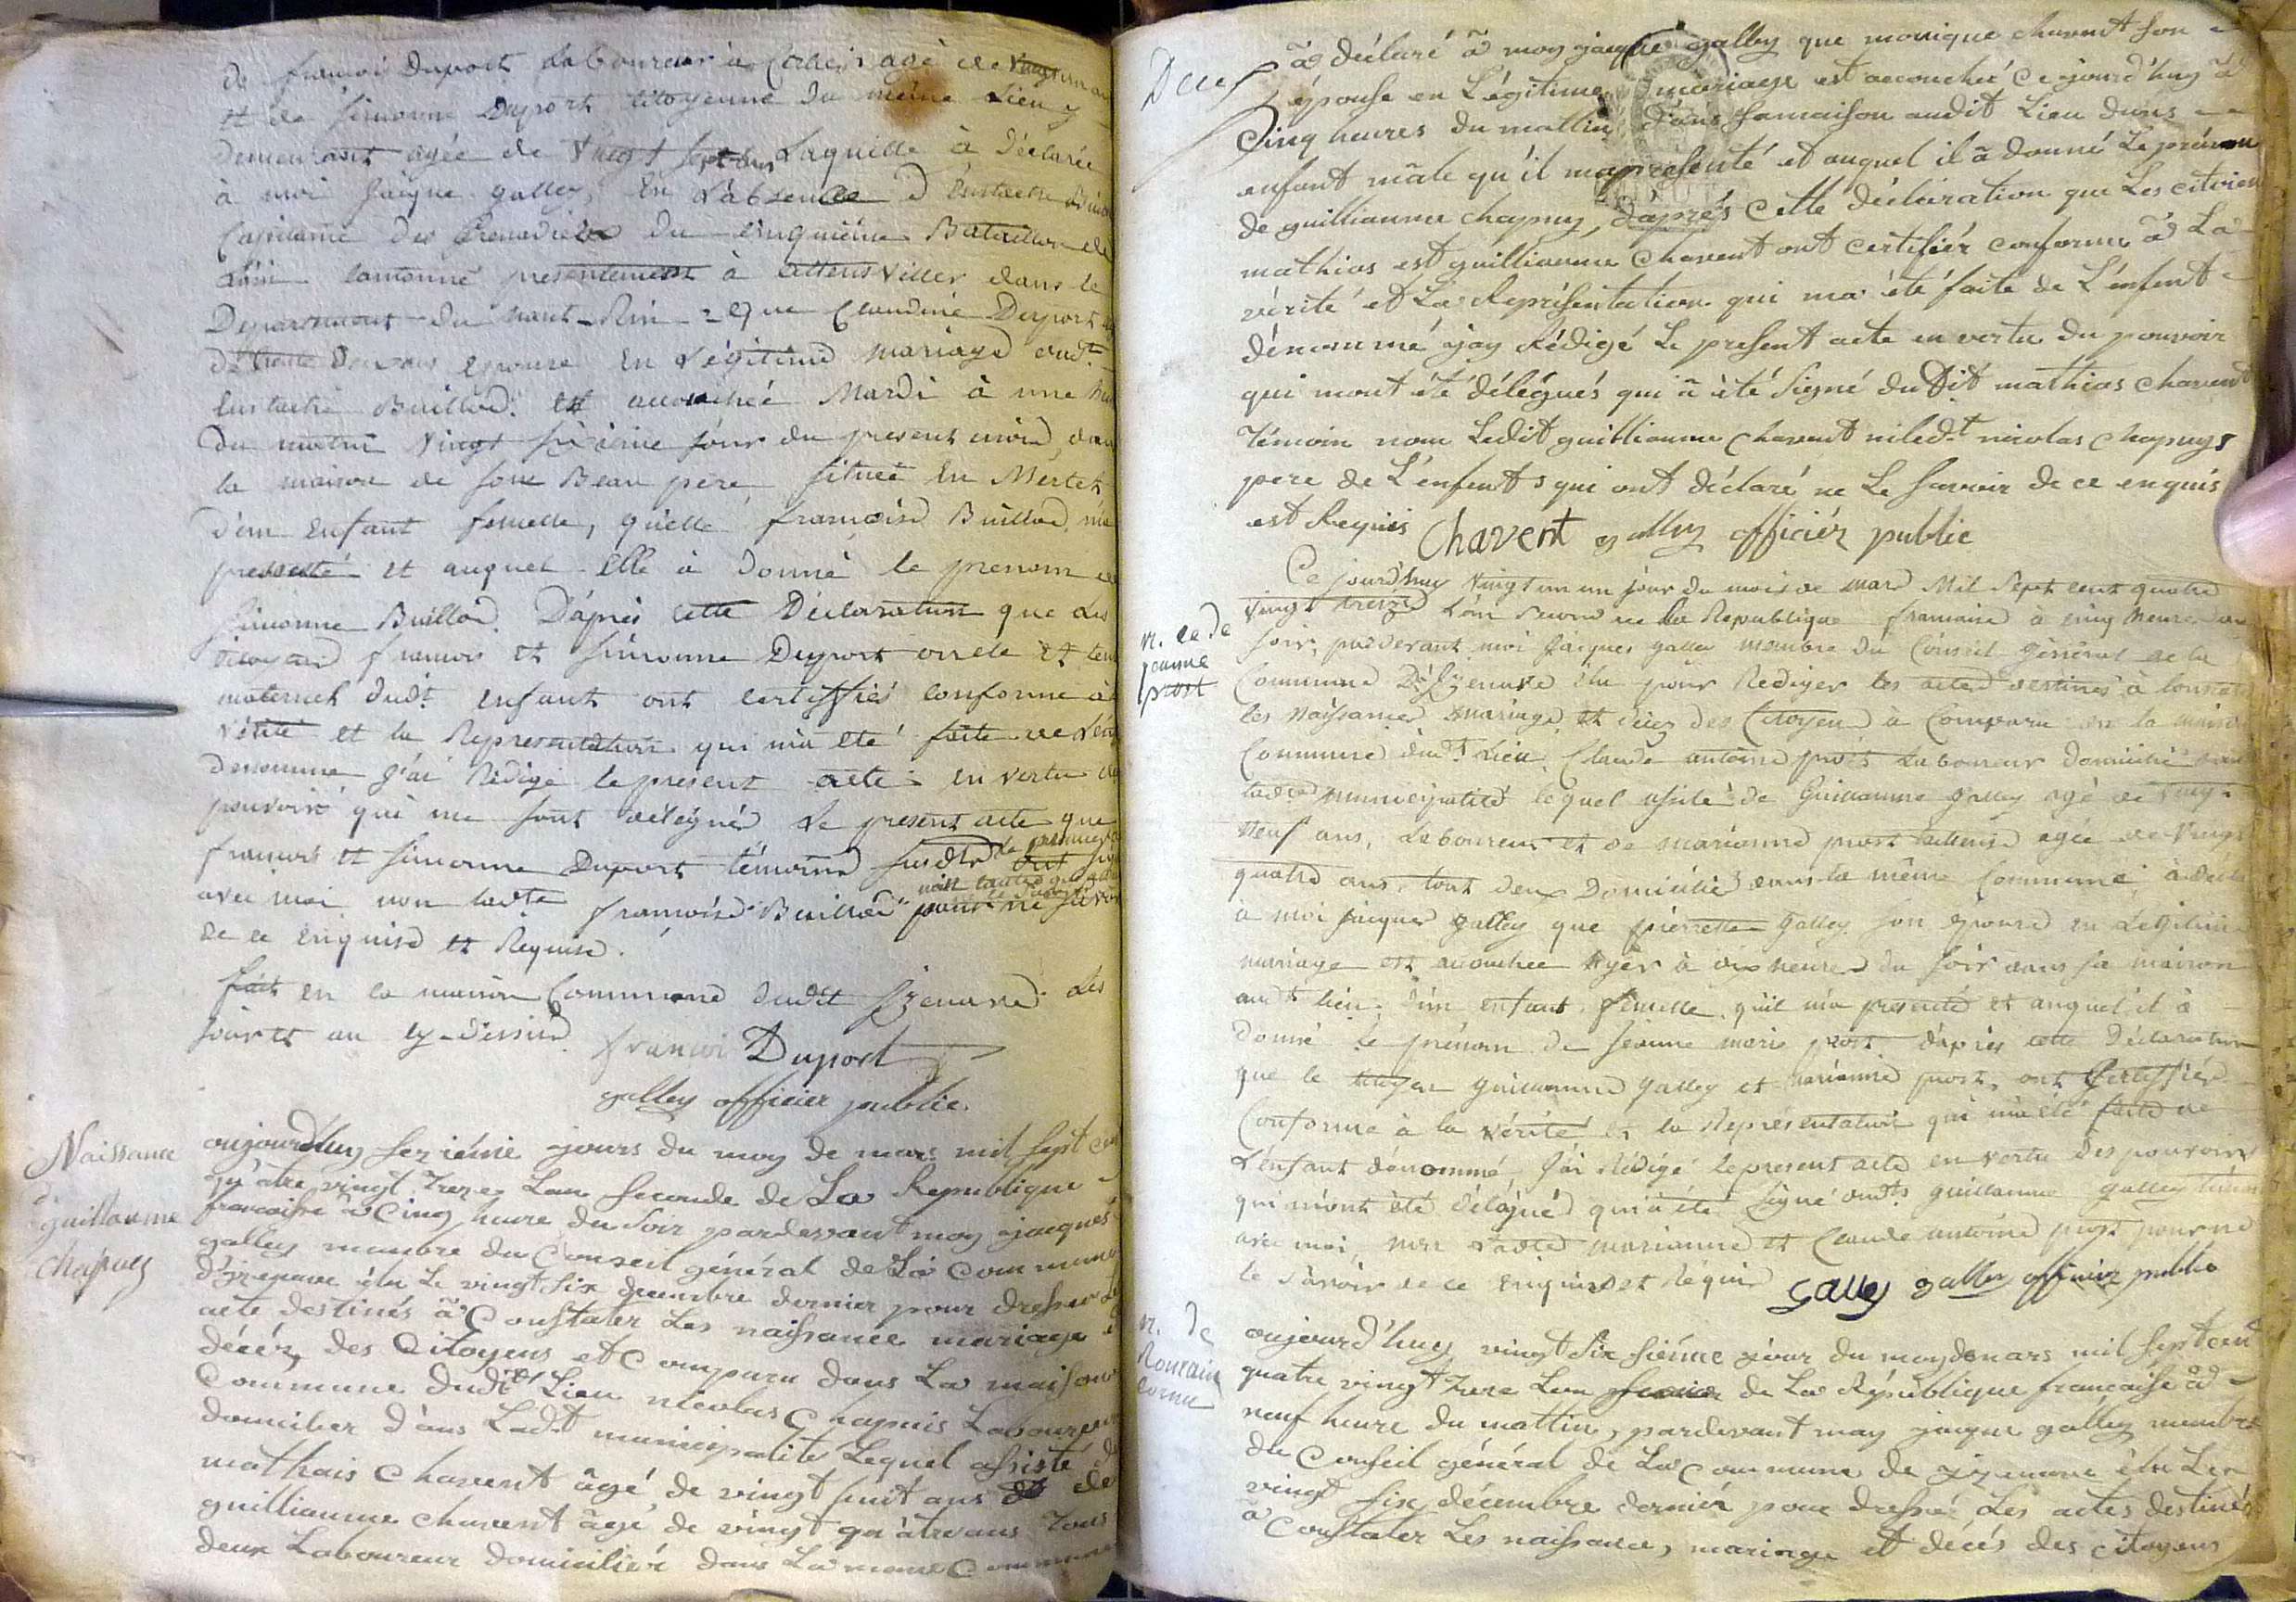 de francois Duport Laboureur à agé de
et de simonne Duport citoyenne du même Lieu y
demeurant agée de vingt sept ans Laquelle à déclarée
à moi Jacque galley, en L'absence d'Eustache
Capitaine des Grenadiers du cinquième Bataillon de
L'ain cantonné presentement à viller dans le
Departement du haut Rin que Claudine Duport
de epouse en Légitime mariage dudt
Eustache Buillod est accouchée Mardi à une
du matin vingt jour du present mois, dans
la maison de son Beau père située en
d'un enfant femelle, quelle françoise Buillod m'a
presenté et auquel elle à donné le prenom de
simonne Buillod. D'après cette Déclaration que les
citoyens francois et simonne Duport oncle et tente
maternel dudt enfant ont certiffiés conforme à la
vérité et la Representation qui m'a eté faite de
denommé j'ai Rédigé le present acte en vertu des
pouvoirs qui me sont délégués Le present acte que
francois et simonne Duport témoins susdts le premier
avec moi non ladte francoise Buillod pour ne savoir
de ce Enquise et Requise.
fait en la maison Commune dudit Izenave Les
jour et an cy-dessus
francoi Duport
galley officier public.
Naissance
de
guillaume
chapuis
aujourd'huy seizième jours du moy de mars mil sept cent
quàtre vingt treize Lan seconde de La Republique
francaise à Cinq heure du soir pardevant moy jacques
galley membre du Conseil général de La Commune
d'izenave élu Le vingt six decembre dernier pour dresser Les
acte destinés à Constater Les naissance mariage et
décéz des Citoyens et Comparu dans La maison
Commune dudt Lieu nicolas Chapuis Laboureur
domicilier dans Ladt municipalité Lequel assisté de
mathais Chavent âgé de vingt huit ans et de
guilliaume chavent âgé de vingt qu'àtre ans tous
deux Laboureur domiciliér dans La meme Commune
à déclaré à moy jacque galley que monique chavent son
épouse en Légitime mariage est accouchée Ce jourd'huy à
Cinq heures du mattin dans samaison audit Lieu duns
enfant mâle qu'il ma presenté et auquel il à donné Le prénom
de guilliaume chapuy, d'après Cette déclaration que Les citoiens
mathias est guilliaume Chavent ont certifiér conforme à La
vérité et La Représentation qui ma été faite de L'enfent
dénommé jay Rédigé Le present acte en vertu du pouvoir
qui mont été délégués qui à été signé du Dit mathias chavent
témoin nom Ledit guilliaume Chavent niledt nicolas chapuys
pere de L'enfent qui ont déclaré ne Le savoir de ce enquis
est Requis Chavent galley officiér public
n.ce de
jeanne
prost
Ce jourd'huy vingt un jour du mois de mars Mil sept cent quatre
vingt treize L'an second de la Republique francaise à cinq heures du
soir, pardevant moi jacques galley membre du Conseil général de la
Commune D'Izenave élu pour Rediger les actes destinés à Constater
les Naissances mariage et décez des Citoyens à Comparu en la maison
Commune dudt Lieu Claude antoine prost Laboureur domicilié dans
ladte municipalité lequel assisté de Guillaume Galley agé de vingt
neuf ans, Laboureur et de marianne prost agée de vingt
quatre ans, tout deux Domiciliés dans la même Commune, à déclaré
à moi jacques galley que pierrette Galley son épouse en Legitime
mariage est accouchée hyer à dix heures du soir dans sa maison
audt lieu. d'un enfant femelle, qu'il m'a presenté et auquel il à
donné le prénom de jeanne marie prost d'après cette Déclaration
que le citoyen guillaume galley et marianne prost, ont Certiffiés
Conforme à la vérité et la Représentation qui m'a été faite de
L'enfant dénommé, j'ai Rédigé le present acte en vertu Des pouvoirs
qui m'ont été délégués qui à été signé dudts guillaume galley témoin
avec moi, non Ladte marianne et Claude antoine prost pour ne
le savoir de ce Enquis et Réquis Galley galley officier public
n. de
Romain
Cornu
aujourd'huy vingt six sième jour du moy de mars mil sept cent
quatre vingt treze Lan de La République française à
neuf heure du mattin, pardevant moy jacque galley membre
du Conseil général de La Commune de izenave élu Le
vingt six décembre derniér pour dressé Les actes destinés
à Constater Les naissance, mariage et décés des citoyens